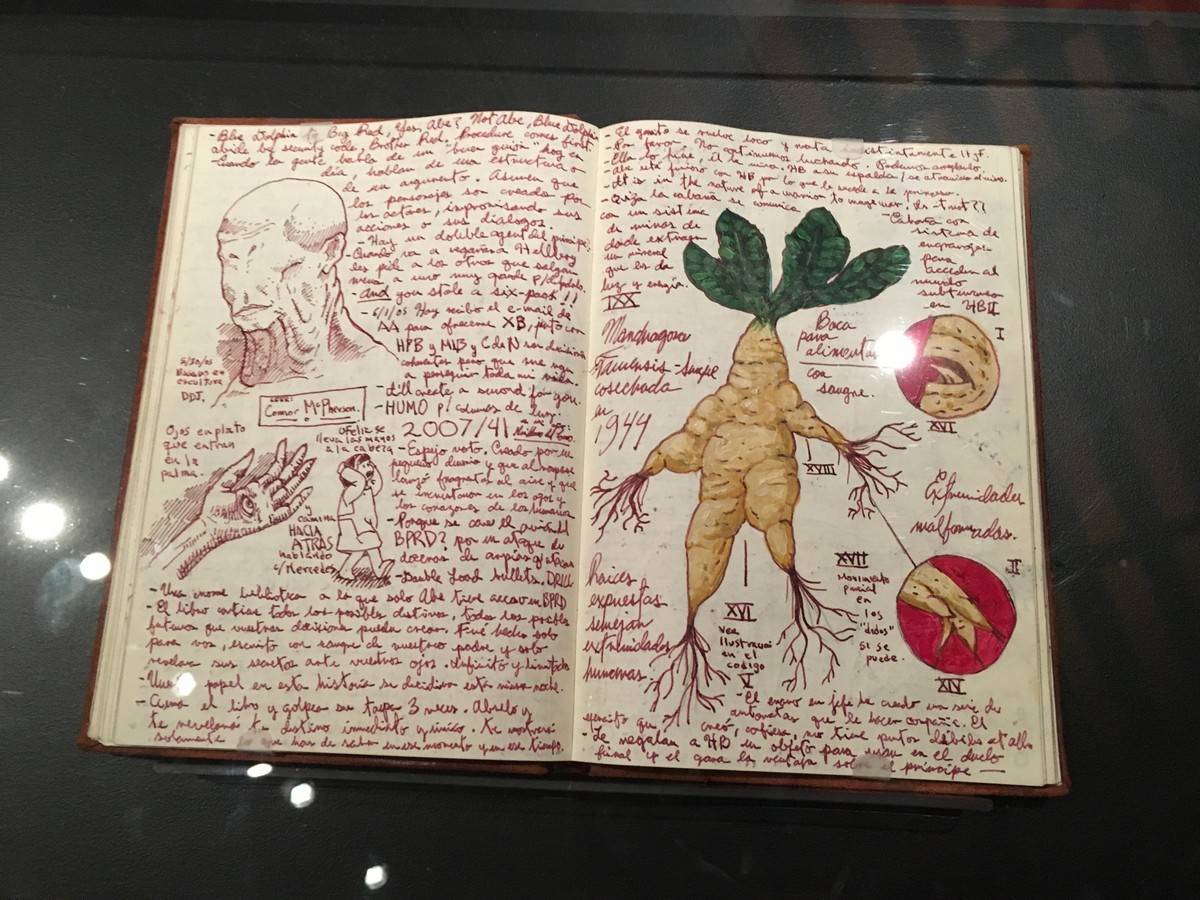 - Blue Dolphin to Big Red, Yes, Abe? Not Abe, Blue Dolphin
abide by security code, Brother Red. Procedure comes first
- Cuando la gente habla de un "buen guión" hoy en
día, hablan de una estructura o
de un argumento. Asumen que
los personajes son creados por
los actores, improvisando sus
acciones o sus diálogos.
- Hay un double agent del príncipe.
- Cuando va a regañar a Hellboy
les pide a los otros que salgan
- and you stole a six-pack!!
- 6/1/05 Hoy recibo el e-mail de
AA para ofrecerme XB, junto con
HPB y MLB y C de N
a perseguir toda mi vida.
- I'll create a sword for you.
- HUMO p/ columnas de luz.
2007/41
5/30/05
Basado en
escultura
DDJ.
Connor McPherson.
Ojos en plato
que entran
en la
palma
Ofelia se
lleva las manos
a la cabeza
y
camina
HACIA
ATRÁS
hablando
c/ Mercedes
- Espejo roto. Creado por un
pequeño
lanzó fragmentos al aire y que
se incrustaron en los ojos y
los corazones de los humanos
- Porque se cae el avión del
BPRD? por un ataque de
docenas de
- Double load bullets. DRILL
- Una enorme biblioteca a la que solo Abe tiene acceso en BPRD
- El libro contiene todos los posibles destinos, todos los posibles
futuros que vuestras decisiones puedan crear. Fué hecho solo
para vos, escrito con sangre de vuestro padre y solo
revelara sus secretos ante vuestros ojos. Infinito y limitado
- papel en esta historia se decidira esta misma noche.
- Cierra el libro y golpea su tapa 3 veces. Abrelo y
te revelará tu destino inmediato y único. te mostrará
solamente que has de saber en ese momento y en ese tiempo.
- El ganito se vuelve loco y
- Por favor. No continuemos luchando. Podemos arreglarlo.
- Ella lo hiere, él la mira. HB a su espalda
- Abe está furioso con HB por lo que le sucede a su princesa.
- It is in the nature of a warrior to wage war, is it not??
- Quiza la cabaña se comunica
con un sistema
de minas de
donde extraen
un mineral
que les da
luz y energía.
- Cabaña con
sistema de
engranajes
para
acceder al
mundo
subterraneo
en HBII
IXX
Mandragora
- sangre
cosechada
en
1944
Boca
para
alimentar
con
sangre.
I
XVI
XVIII
Extremidades
malformadas.
Raices
expuestas
semejan
extremidades
humanas.
XVI
Vea
Ilustracion
en el
codigo
V
XVII
Movimiento
parcial
en
los
"dedos"
si se
puede.
II
XIV
- El enano en jefe ha creado una serie de
automatas que le hacen compañía. El
ejercito que creó, confiesa, no tiene puntos débiles
- Le regalan a HB un objeto para usar en el duelo
final y el gana la ventaja sobre el príncipe —